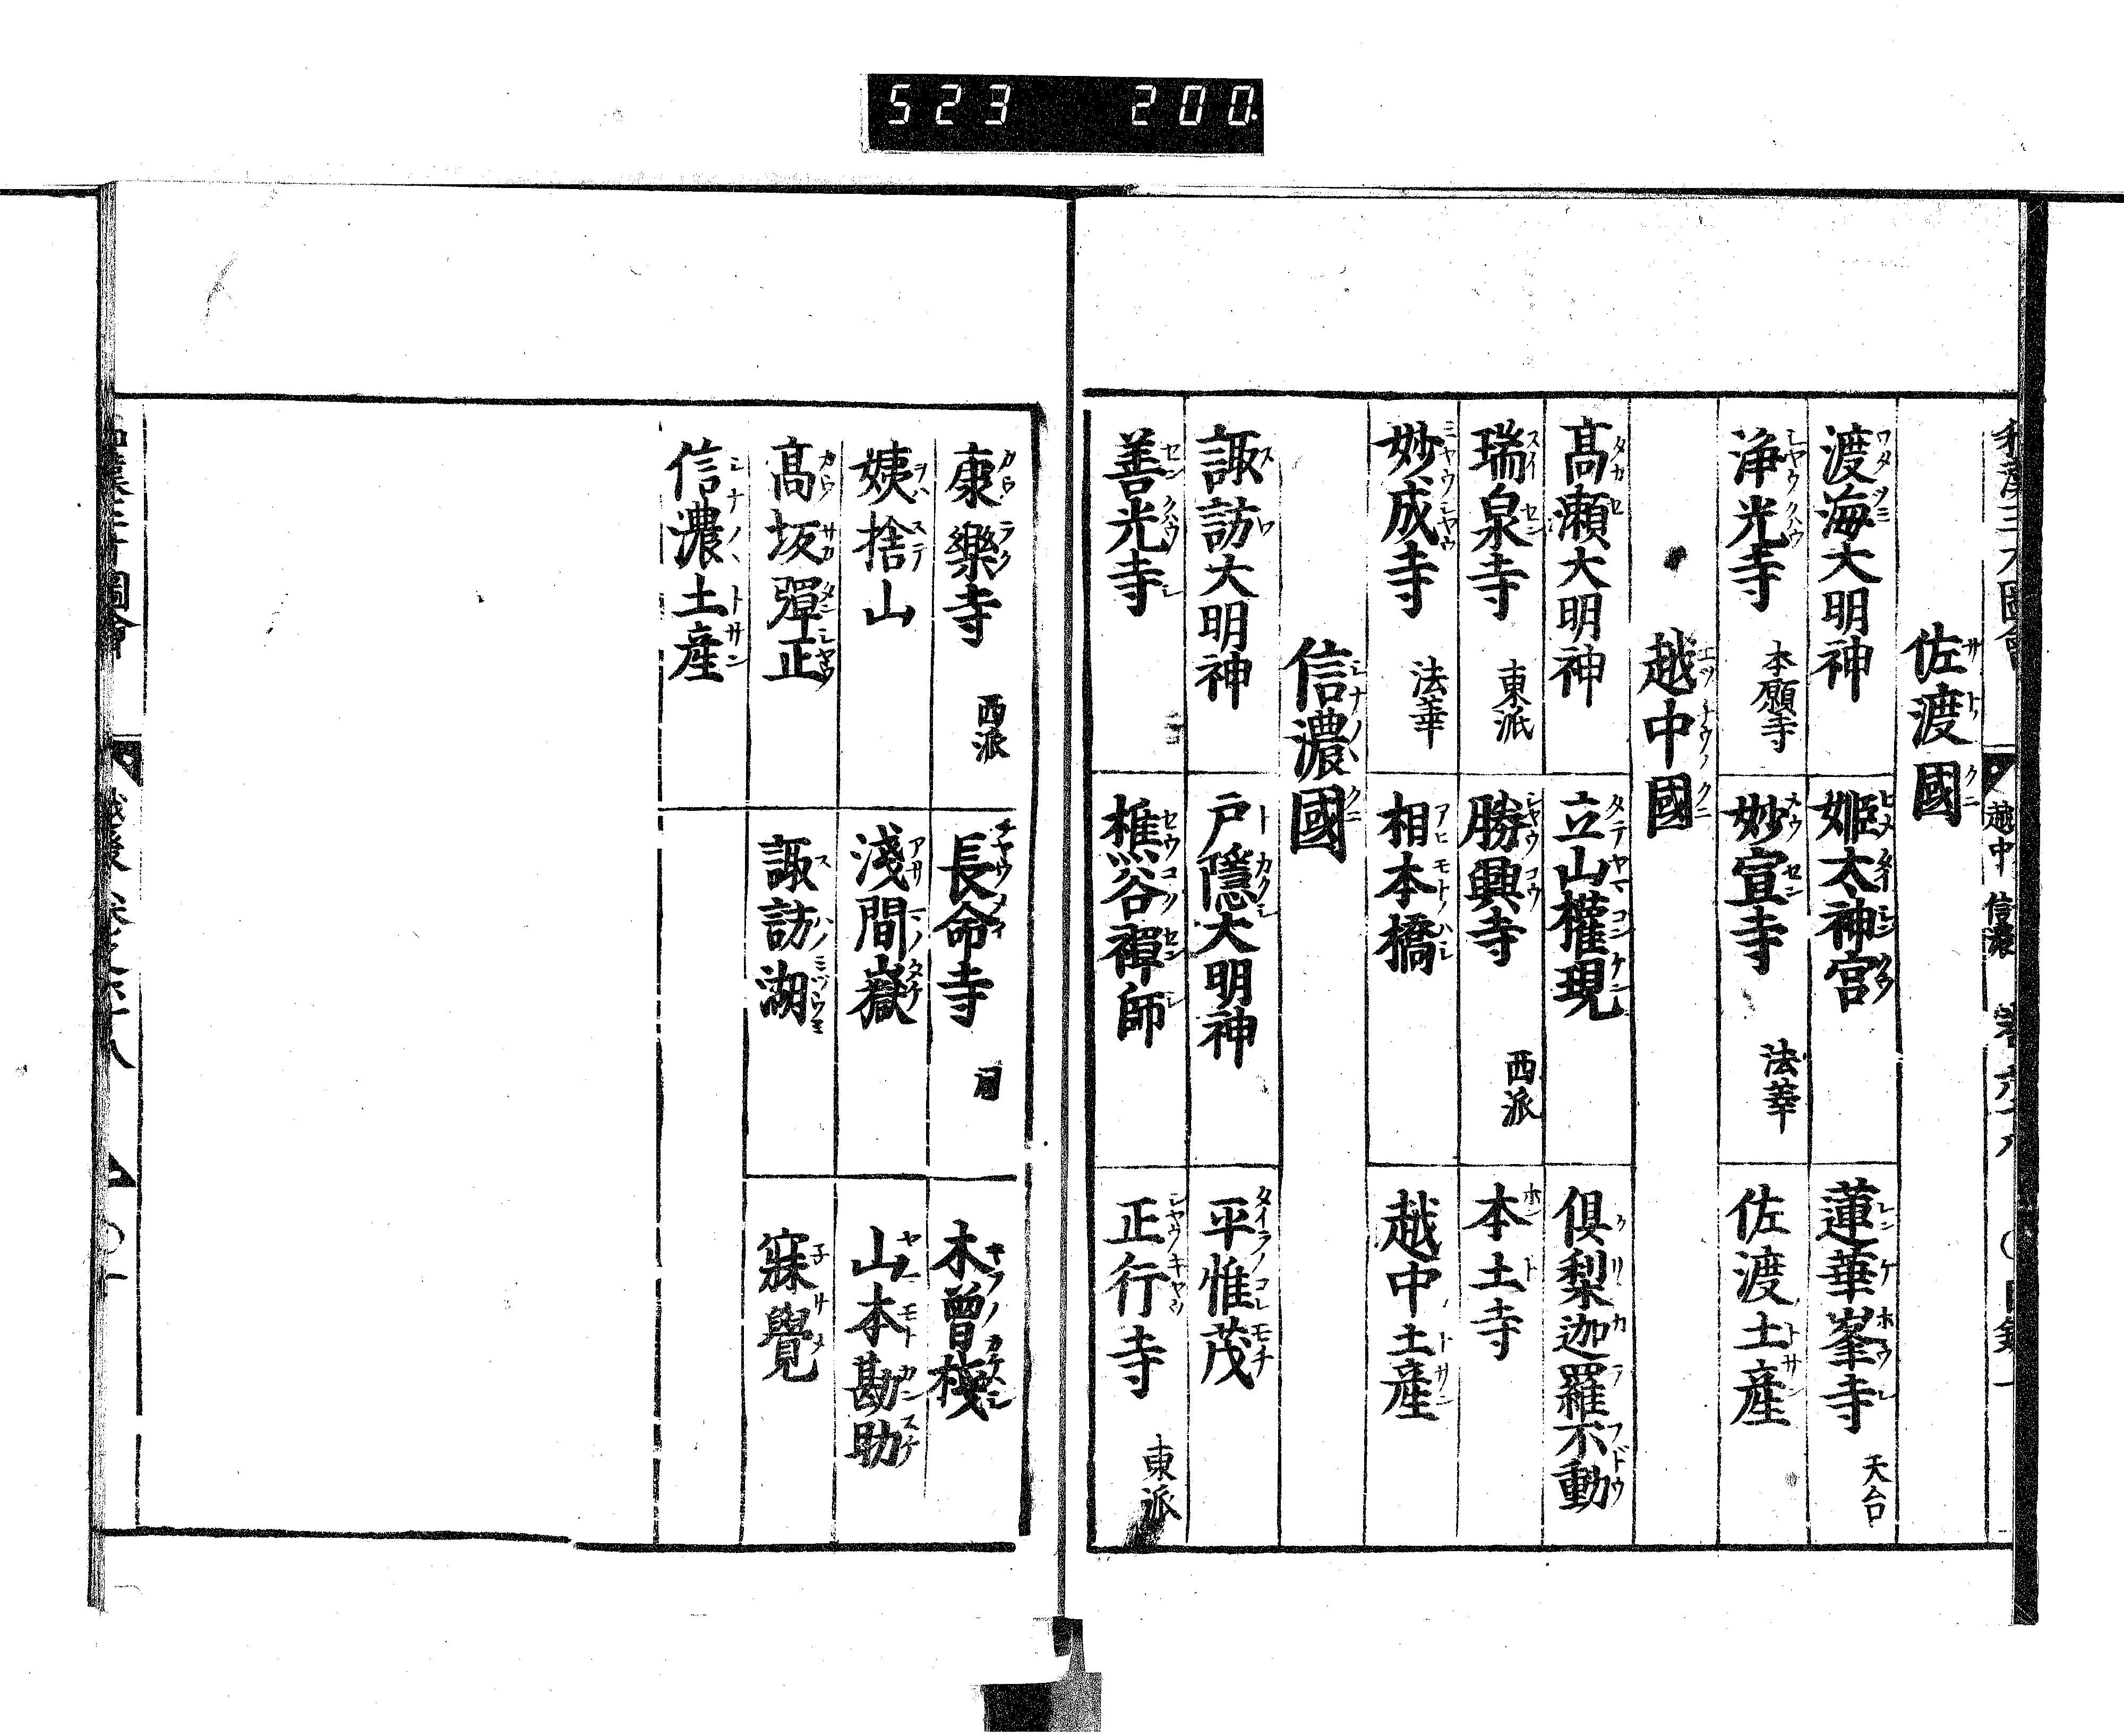 523 200
佐渡國
渡海大明神
姫太神宮
蓮華峯寺 天台
浄光寺 本願寺
妙宣寺 法華
佐渡土産
越中國
髙瀬大明神
立山權現
倶梨迦羅不動
瑞泉寺 東派
勝興寺 西派
本土寺
妙成寺 法華
相本橋
越中土産
信濃國
諏訪大明神
戸隱大明神
平惟茂
善光寺
樵谷禪師
正行寺 東派
康樂寺 西派
長命寺 同
木曽棧
姨捨山
淺間嶽
山本勘助
髙坂彈正
諏訪湖
寐覺
信濃土産